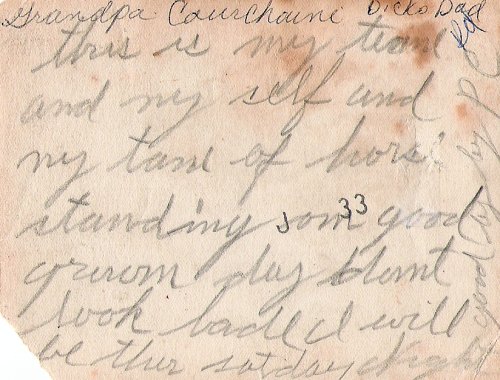 Grandpa Courchaine Dick's Dad
this is my team
and my self and
my tame of hors
standing som good
33
day I dont
look bad I will
be thur satday night
good by